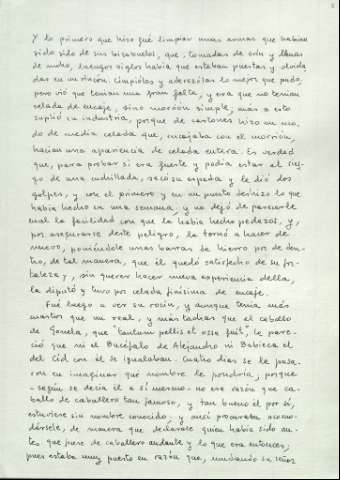 Y lo primero que hizo fué limpiar unas armas que habían
sido sido de sus bisabuelos, que, tomadas de orín y llenas
de moho, luengos siglos había que estaban puestas y olvida
das en un rincón. Limpiólas y aderezólas lo mejor que pudo,
pero vió que tenían una gran falta, y era que no tenían
celada de encaje, sino morrión simple; mas a esto
suplió su industria, porque de cartones hizo un mo
do de media celada que, encajaba con el morrión,
hacían una apariencia de celada entera. Es verdad
que, para probar si era fuerte y podía estar al ries
go de una cuchillada, sacó su espada y le dió dos
golpes, y con el primero y en un punto deshizo lo que
había hecho en una semana; y no dejó de parecerle
mal la facilidad con que la había hecho pedazos, y,
por asegurarse deste peligro, la tornó a hacer de
nuevo, poniéndole unas barras de hierro por de den
tro, de tal manera, que él quedó satisfecho de su for
taleza y, sin querer hacer nueva experiencia della,
la diputó y tuvo por celada finísima de encaje.
Fué luego a ver su rocín, y aunque tenía más
cuartos que un real, y más tachas que el caballo
de Gonela, que "tantum pellis et ossa fuit", le pare
ció que ni el Bucéfalo de Alejandro ni Babieca el
del Cid con él se igualaban. Cuatro días se le pasa
ron en imaginar que nombre le pondría, porque
-según se decía él a sí mesmo- no era razón que ca
ballo de caballero tan famoso, y tan bueno él por sí,
estuviese sin nombre conocido; y ansí procuraba acomo
dársele, de manera que declarase quien había sido an
tes que fuese de caballero andante y lo que era entonces;
pues estaba muy puesto en razón que, mudando su señor